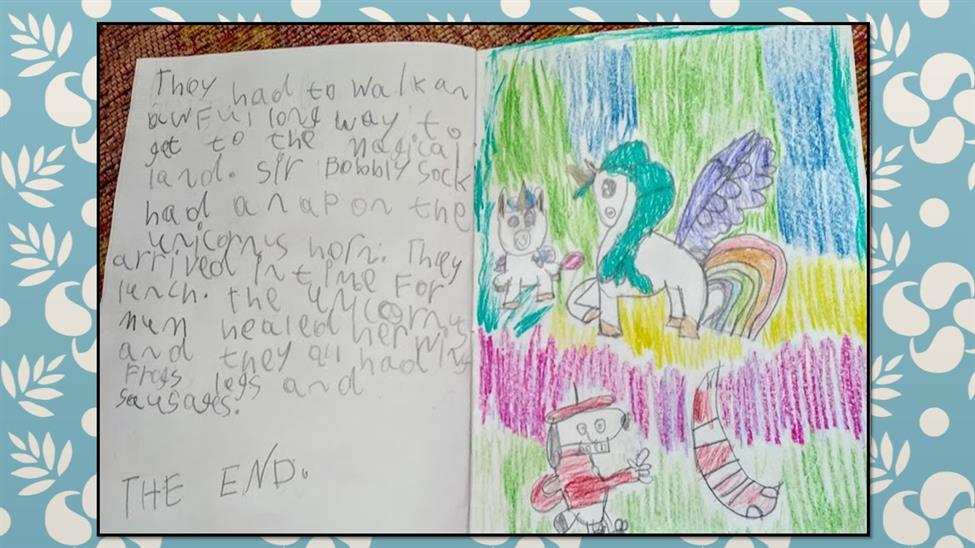 They had to walk an
awful long way to
get to the magical
land. Sir Bobobly Sock
had a nap on the
unicornus horn. They
arrived in time For
lunch. the unicornus
mum healed her wing
and they all had
Frogs legs and
sausages.
THE END.